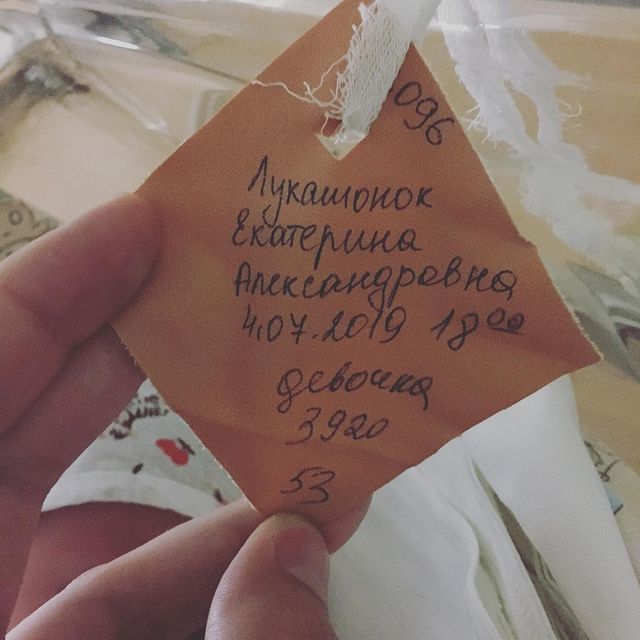 096
Лукашонок
Екатерина
Александровна
4.07.2019 18 00
девочка
3920
53